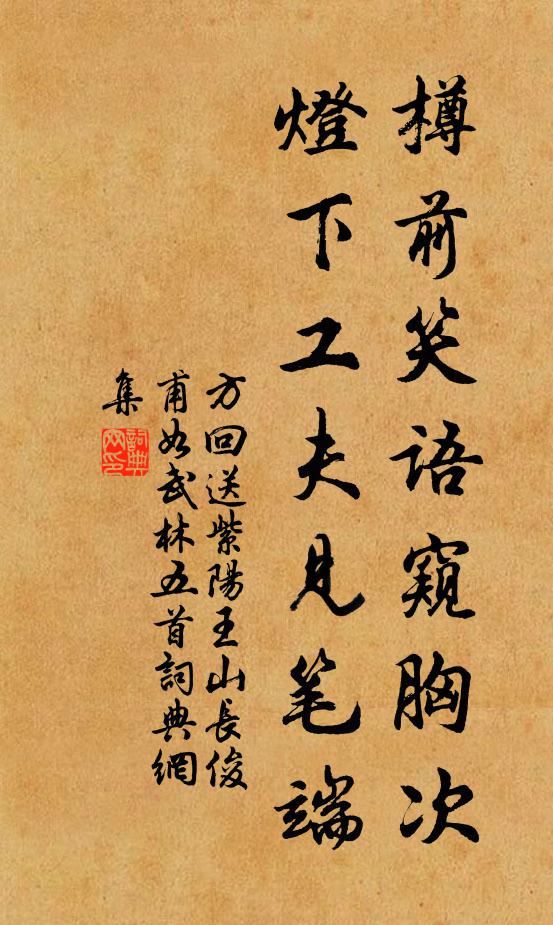 樽前笑语窺胸次
燈下工夫見笔端
方回送紫陽王山長俊
甫如武林五首詞典網
集
詞典网印